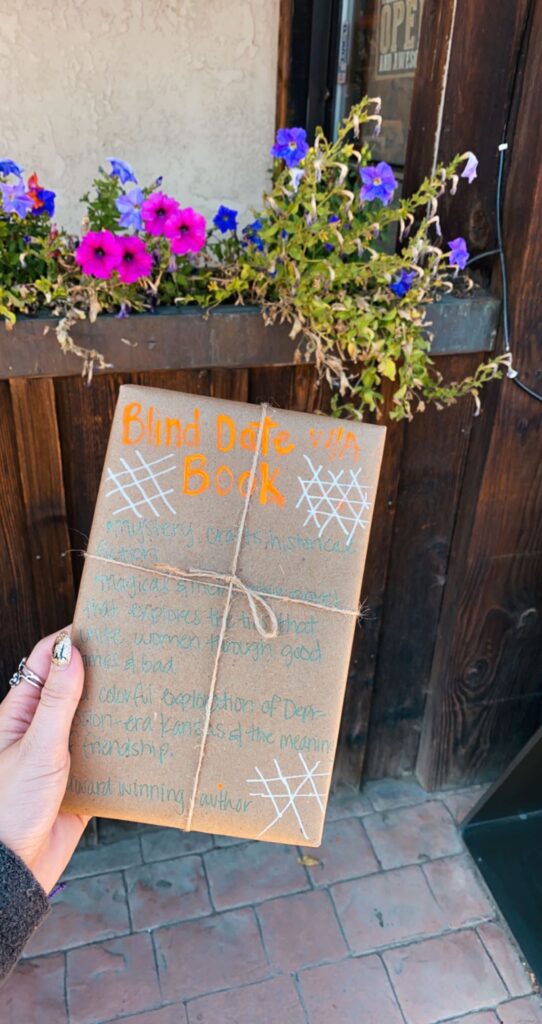 OPEN
Blind Date W/A
Book
mystery, crafts, historical
fiction
magical & novel
that explores the ties that
unite women through good
times & bad
colorful exploration of Depr-
ssion-era Kansas & the meanin
friendship.
award winning author